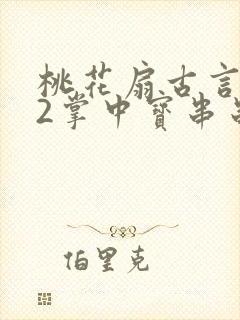 桃花扇古言
2掌中寶串
伯里克